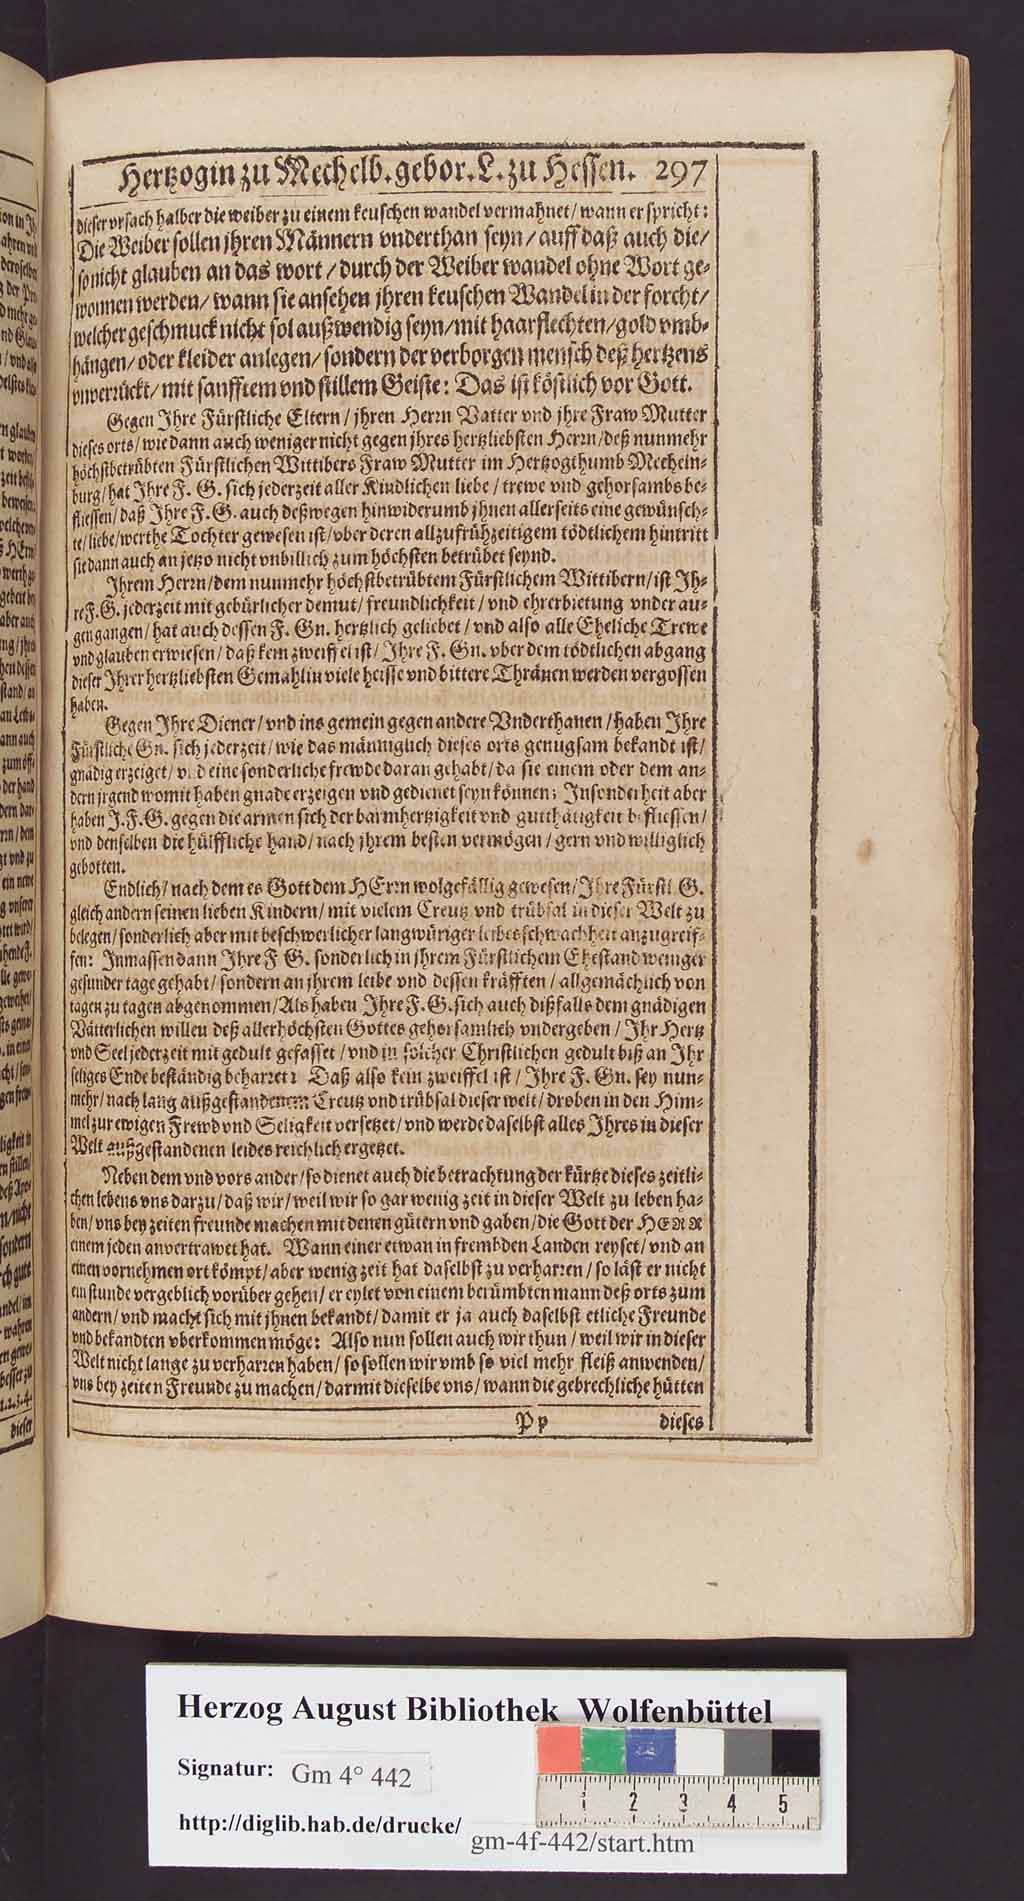 Hertzogin zu Mechelb. gebor. L. zu Hessen. 297
dieser vrsach halber die weiber zu einem keuschen wandel vermahnet/ wann er spricht:
Die Weiber sollen jhren Männern vnderthan seyn/ auff daß auch die/
so nicht glauben an das wort/ durch der Weiber wandel ohne Wort ge-
wonnen werden/ wann sie ansehen jhren keuschen Wandel in der forcht/
welcher geschmuck nicht sol außwendig seyn/ mit haarflechten/ gold vmb-
hängen/ oder kleider anlegen/ sondern der verborgen mensch deß hertzens
vnverruckt/ mit sanfftem vnd stillem Geiste: Das ist köstlich vor Gott.
Gegen Ihre Fürstliche Eltern/ jhren Herrn Vatter vnd jhre Fraw Mutter
dieses orts/ wie dann auch weniger nicht gegen jhres hertzliebsten Herrn/ deß nunmehr
höchstbetrübten Fürstlichen Wittibers Fraw Mutter im Hertzogthumb Mecheln-
burg/ hat Ihre F. G. sich jederzeit aller Kindlichen liebe/ trewe vnd gehorsambs be-
fliessen/ daß Ihre F. G. auch deßwegen hinwiderumb jhnen allerseits eine gewünsch-
te/ liebe/ werthe Tochter gewesen ist/ vber deren allzufrühzeitigem tödtlichem hintritt
sie dann auch an jetzo nicht vnbillich zum höchsten betrübet seynd.
Ihrem Herrn/ dem nunmehr höchstbetrübtem Fürstlichem Wittibern/ ist Ih-
re F. G. jederzeit mit gebürlicher demut/ freundlichkeit/ vnd ehrerbietung vnder au-
gen gangen/ hat auch dessen F. Gn. hertzlich geliebet/ vnd also alle Eheliche Trewe
vnd glauben erwiesen/ daß kein zweiffel ist/ Ihre F. Gn. vber dem tödtlichen abgang
dieser Ihrer hertzliebsten Gemahlin viele heisse vnd bittere Thränen werden vergossen
haben.
Gegen Ihre Diener/ vnd ins gemein gegen andere Vnderthanen/ haben Ihre
Fürstliche Gn. sich jederzeit/ wie das männiglich dieses orts genugsam bekandt ist/
gnädig erzeiget/ vnd eine sonderliche frewde daran gehabt/ da sie einem oder dem an-
dern jrgend womit haben gnade erzeigen vnd gedienet seyn können; Insonderheit aber
haben J. F. G. gegen die armen sich der barmhertzigkeit vnd gutthätigkeit befliessen/
vnd denselben die hülffliche hand/ nach jhrem besten vermögen/ gern vnd williglich
gebotten.
Endlich/ nach dem es Gott dem HErrn wolgefällig gewesen/ Ihre Fürstl. G.
gleich andern seinen lieben Kindern/ mit vielem Creutz vnd trübsal in dieser Welt zu
belegen/ sonderlich aber mit beschwerlicher langwüriger leibesschwachheit anzugreif-
fen: Inmassen dann Ihre F. G. sonderlich in jhrem Fürstlichem Ehestand weniger
gesunder tage gehabt/ sondern an jhrem leibe vnd dessen kräfften/ allgemächlich von
tagen zu tagen abgenommen/ Als haben Ihre F. G. sich auch dißfalls dem gnädigen
Vätterlichen willen deß allerhöchsten Gottes gehorsamlich vndergeben/ Ihr Hertz
vnd Seel jederzeit mit gedult gefasset/ vnd in solcher Christlichen gedult biß an Ihr
seliges Ende beständig beharret: Daß also kein zweiffel ist/ Ihre F. Gn. sey nun-
mehr/ nach lang außgestandenem Creutz vnd trübsal dieser welt/ droben in den Him-
mel zur ewigen Frewd vnd Seligkeit versetzet/ vnd werde daselbst alles Ihres in dieser
Welt außgestandenen leides reichlich ergetzet.
Neben dem vnd vors ander/ so dienet auch die betrachtung der kürtze dieses zeitli-
chen lebens vns darzu/ daß wir/ weil wir so gar wenig zeit in dieser Welt zu leben ha-
ben/ vns bey zeiten freunde machen mit denen gütern vnd gaben/ die Gott der HERR
einem jeden anvertrawet hat. Wann einer etwan in frembden Landen reyset/ vnd an
einen vornehmen ort kömpt/ aber wenig zeit hat daselbst zu verharren/ so läst er nicht
ein stunde vergeblich vorüber gehen/ er eylet von einem berümbten mann deß orts zum
andern/ vnd macht sich mit jhnen bekandt/ damit er ja auch daselbst etliche Freunde
vnd bekandten vberkommen möge: Also nun sollen auch wir thun/ weil wir in dieser
Welt nicht lange zu verharren haben/ so sollen wir vmb so viel mehr fleiß anwenden/
vns bey zeiten Freunde zu machen/ darmit dieselbe vns/ wann die gebrechliche hütten
Pp dieses
Herzog August Bibliothek Wolfenbüttel
Signatur: Gm 4° 442
http://diglib.hab.de/drucke/ gm-4f-442/start.htm
1 2 3 4 5